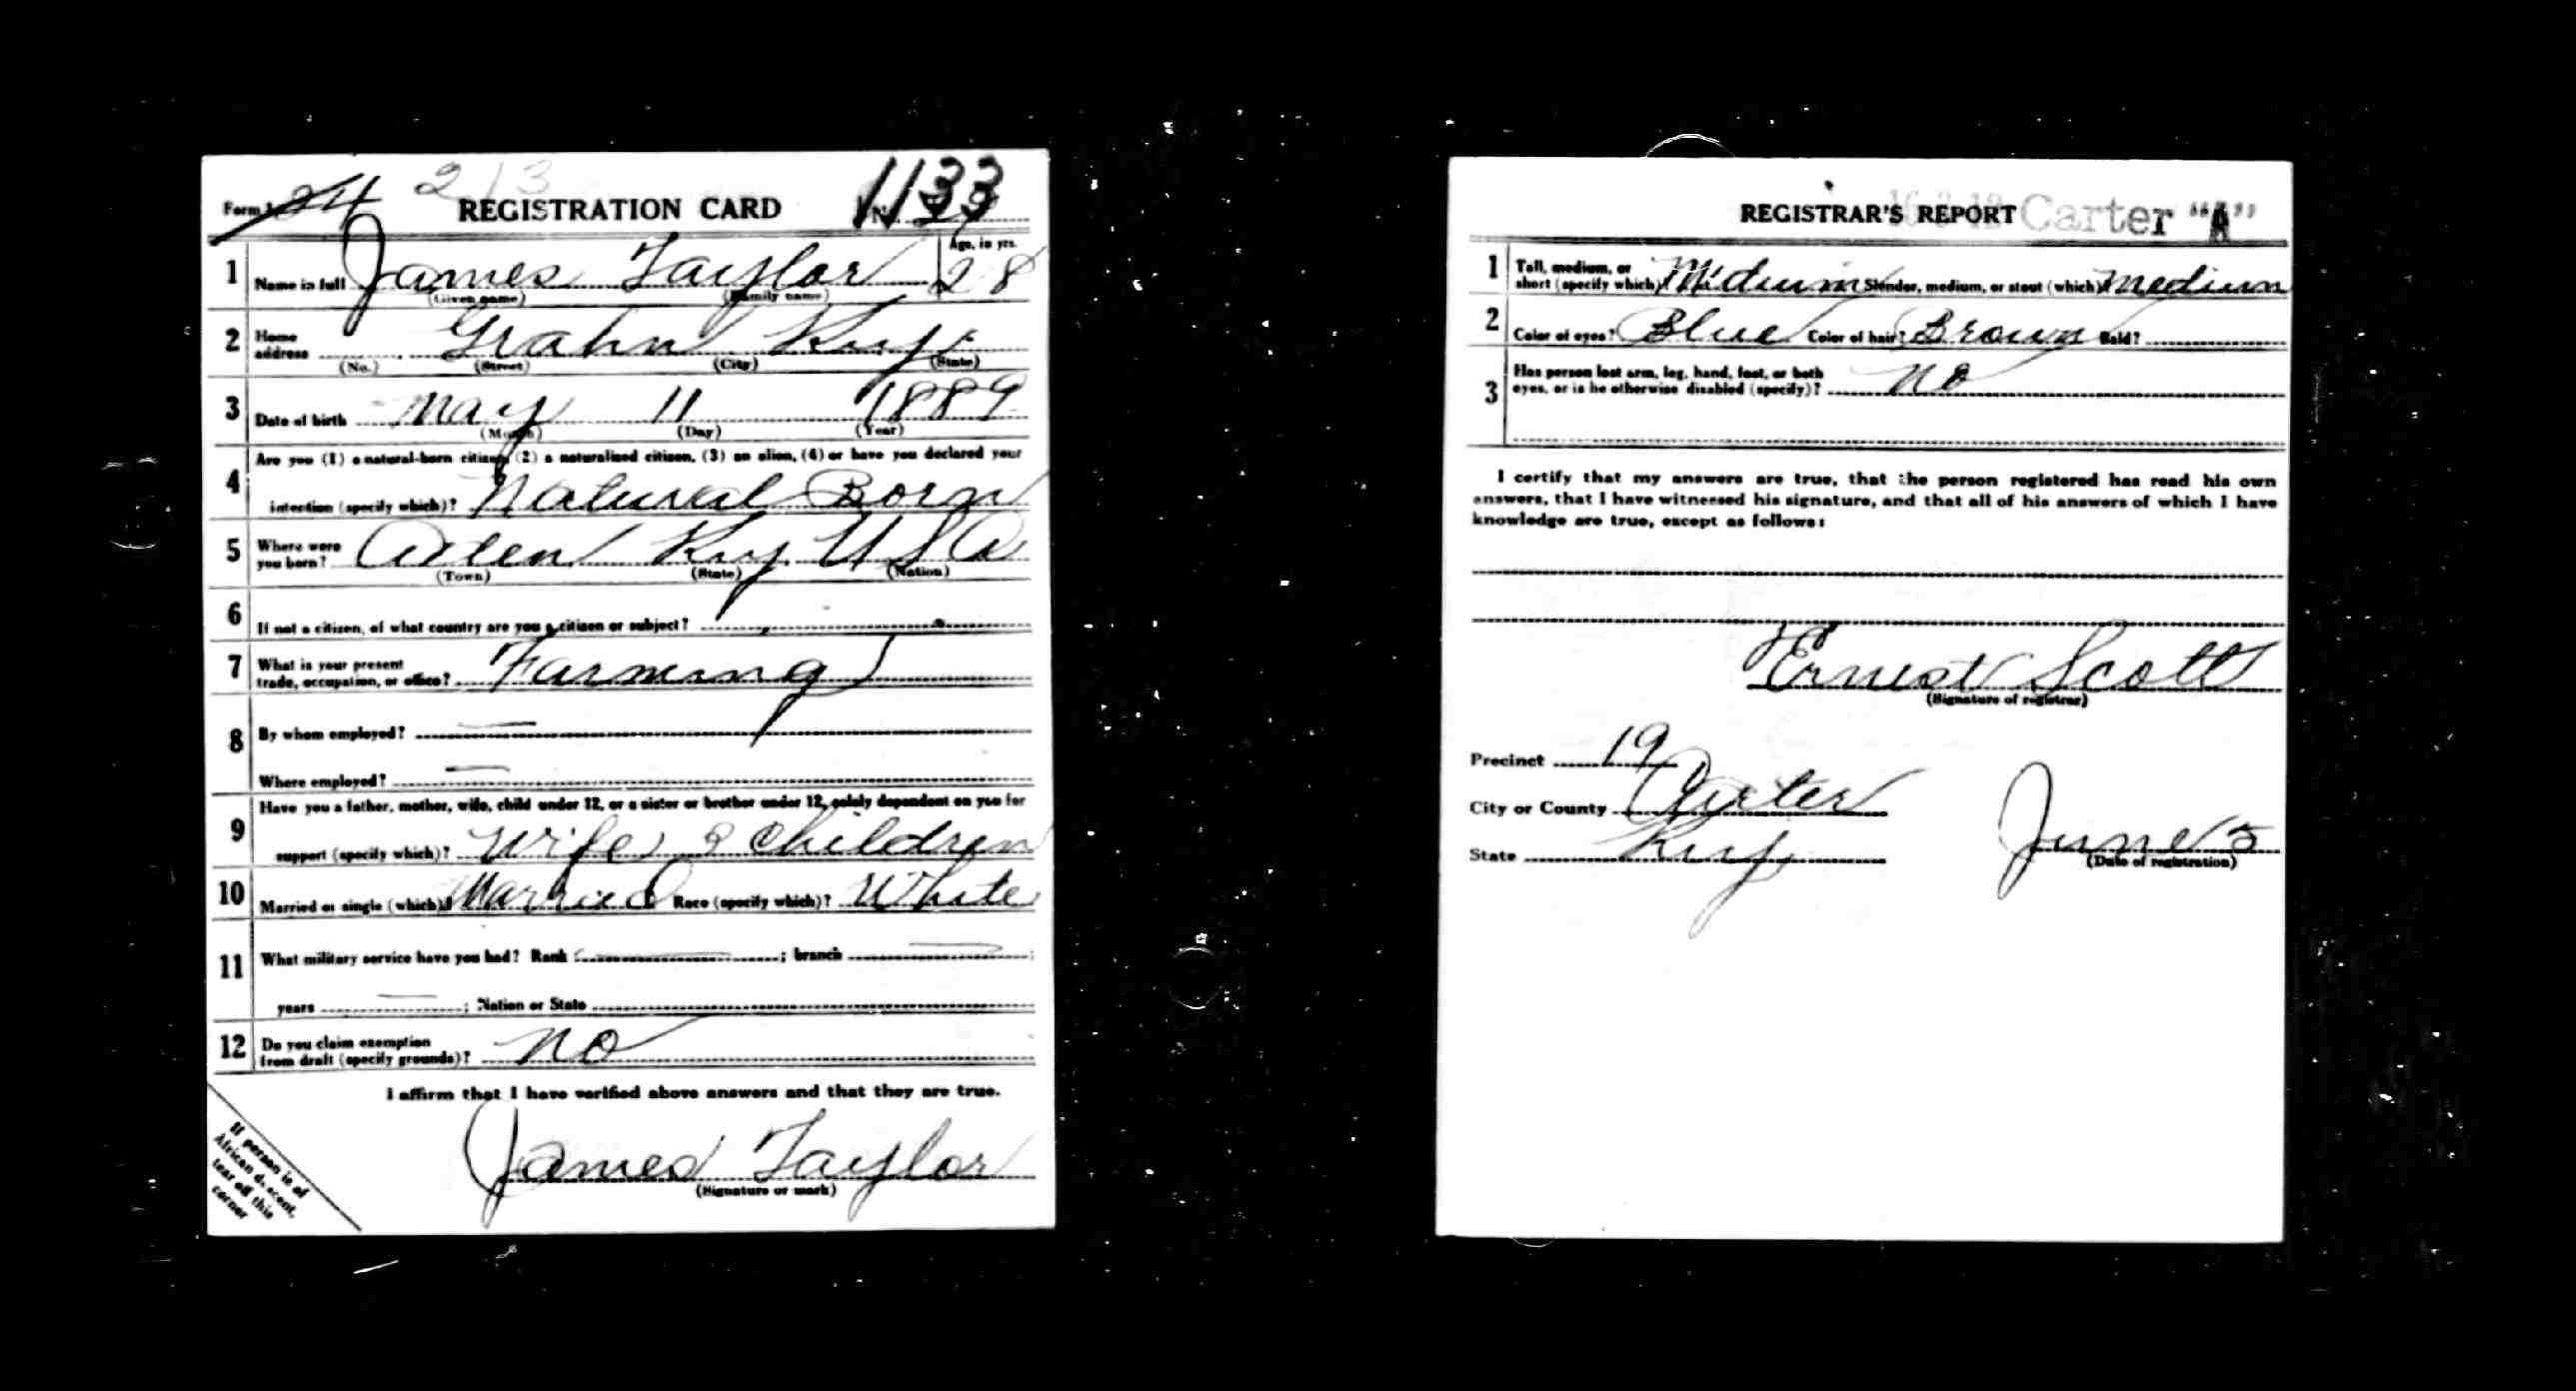 Form 1 24 213 REGISTRATION CARD 1133 No.
1 Name in full James Taylor Age, in yrs. 28
(Given name) (Family name)
2 Home address Grahn Ky.
(No.) (Street) (City) (State)
3 Date of birth May 11 1889
(Month) (Day) (Year)
4 Are you (1) a natural-born citizen, (2) a naturalized citizen, (3) an alien, (4) or have you declared your
intention (specify which)? Natural Born
5 Where were you born? Ky. U S A
(Town) (State) (Nation)
6 If not a citizen, of what country are you a citizen or subject?
7 What is your present
trade, occupation, or office? Farming
8 By whom employed? —
Where employed? —
9 Have you a father, mother, wife, child under 12, or a sister or brother under 12, solely dependent on you for
support (specify which)? Wife 2 Children
10 Married or single (which)? Married Race (specify which)? White
11 What military service have you had? Rank — ; branch — ;
years — ; Nation or State
12 Do you claim exemption
from draft (specify grounds)? no
I affirm that I have verified above answers and that they are true.
James Taylor
(Signature or mark)
If person is of
African descent,
tear off this
corner
REGISTRAR'S REPORT Carter "A"
1 Tall, medium, or
short (specify which)? Midium Slender, medium, or stout (which)? Medium
2 Color of eyes? Blue Color of hair? Brown Bald?
3 Has person lost arm, leg, hand, foot, or both
eyes, or is he otherwise disabled (specify)? no
I certify that my answers are true, that the person registered has read his own
answers, that I have witnessed his signature, and that all of his answers of which I have
knowledge are true, except as follows:
Ernest Scott
(Signature of registrar)
Precinct 19
City or County Carter
State Ky June 5
(Date of registration)